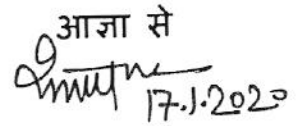 आज्ञा से
17.1.2020